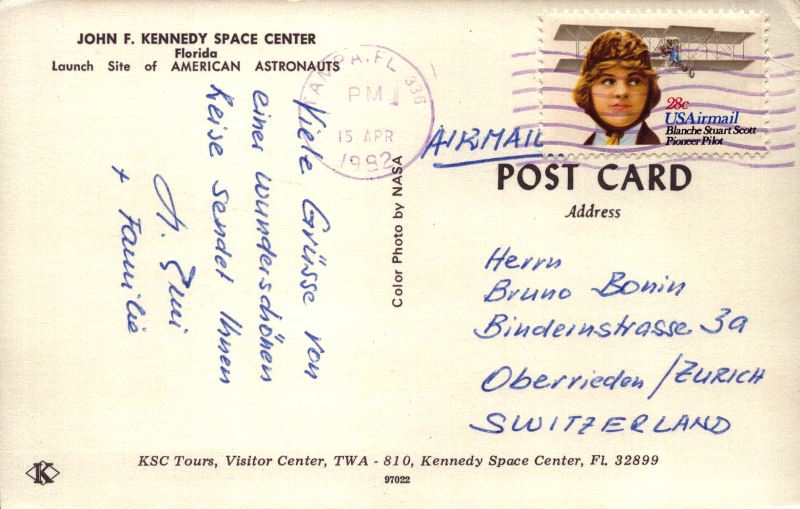 JOHN F. KENNEDY SPACE CENTER
Florida
Launch Site of AMERICAN ASTRONAUTS
TAMPA, FL 336
PM
15 APR
1982
28c
USAirmail
Blanche Stuart Scott
Pioneer Pilot
AIRMAIL
POST CARD
Address
Viele Grüsse von
einer wunderschönen
Reise sendet Ihnen
+ Familie
Color Photo by NASA
Herrn
Bruno Bonin
Bindernstrasse 3a
Oberrieden / ZURICH
SWITZERLAND
K
KSC Tours, Visitor Center, TWA - 810, Kennedy Space Center, Fl. 32899
97022